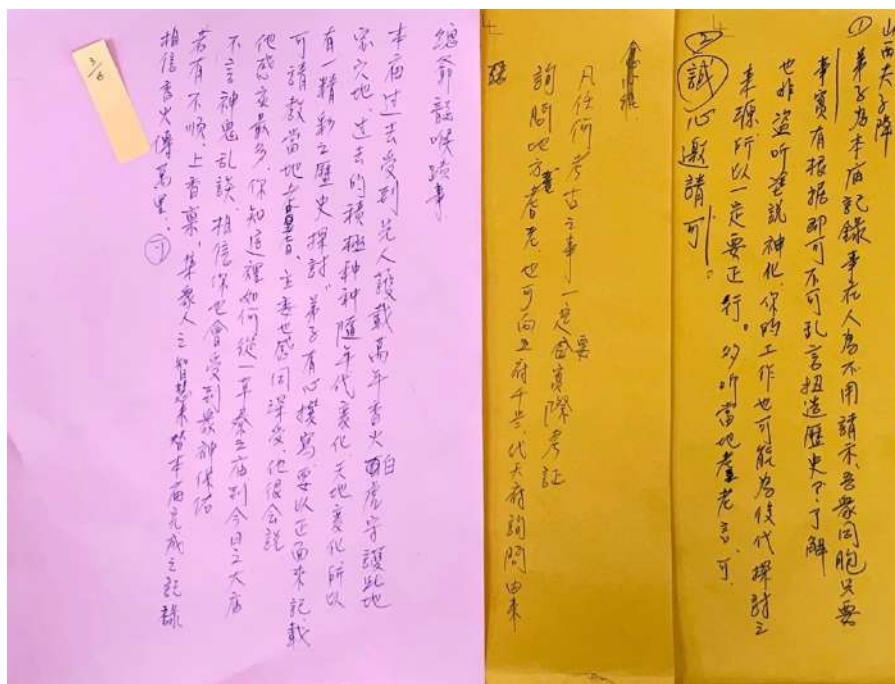 山西夫子降
① 弟子為本庙記錄事在人為不用請示、吾衆同胞只要
事實有根据即可不可乱言扭造歷史不了解
也非盗听塗説神化、你的工作也可能為後代探討之
来源、所以一定要正行。多听當地耆老言、可、
② 誠心邀請可。
凡任何考古之事一定要實際考証
詢問地方耆老、也可向五府千岁、代天府詢問由来
總爺
本庙过去受到先人護載萬年香火 白虎守護此地
穴地、过去的積極种种隨年代变化、天地变化所以
有一精彩之歷史探討"弟子有心撰寫、要以正面来記載
可請教當地耆老、主委也感同深受、他很会説
他感交最多、你知這裡如何從一草寮之庙到今日之大庙
不言神鬼乱談、相信你也會受到衆神保佑
若有不順、上香稟、集衆人之智慧来替本庙完成之記錄
相信香火傳萬里、可
3/6